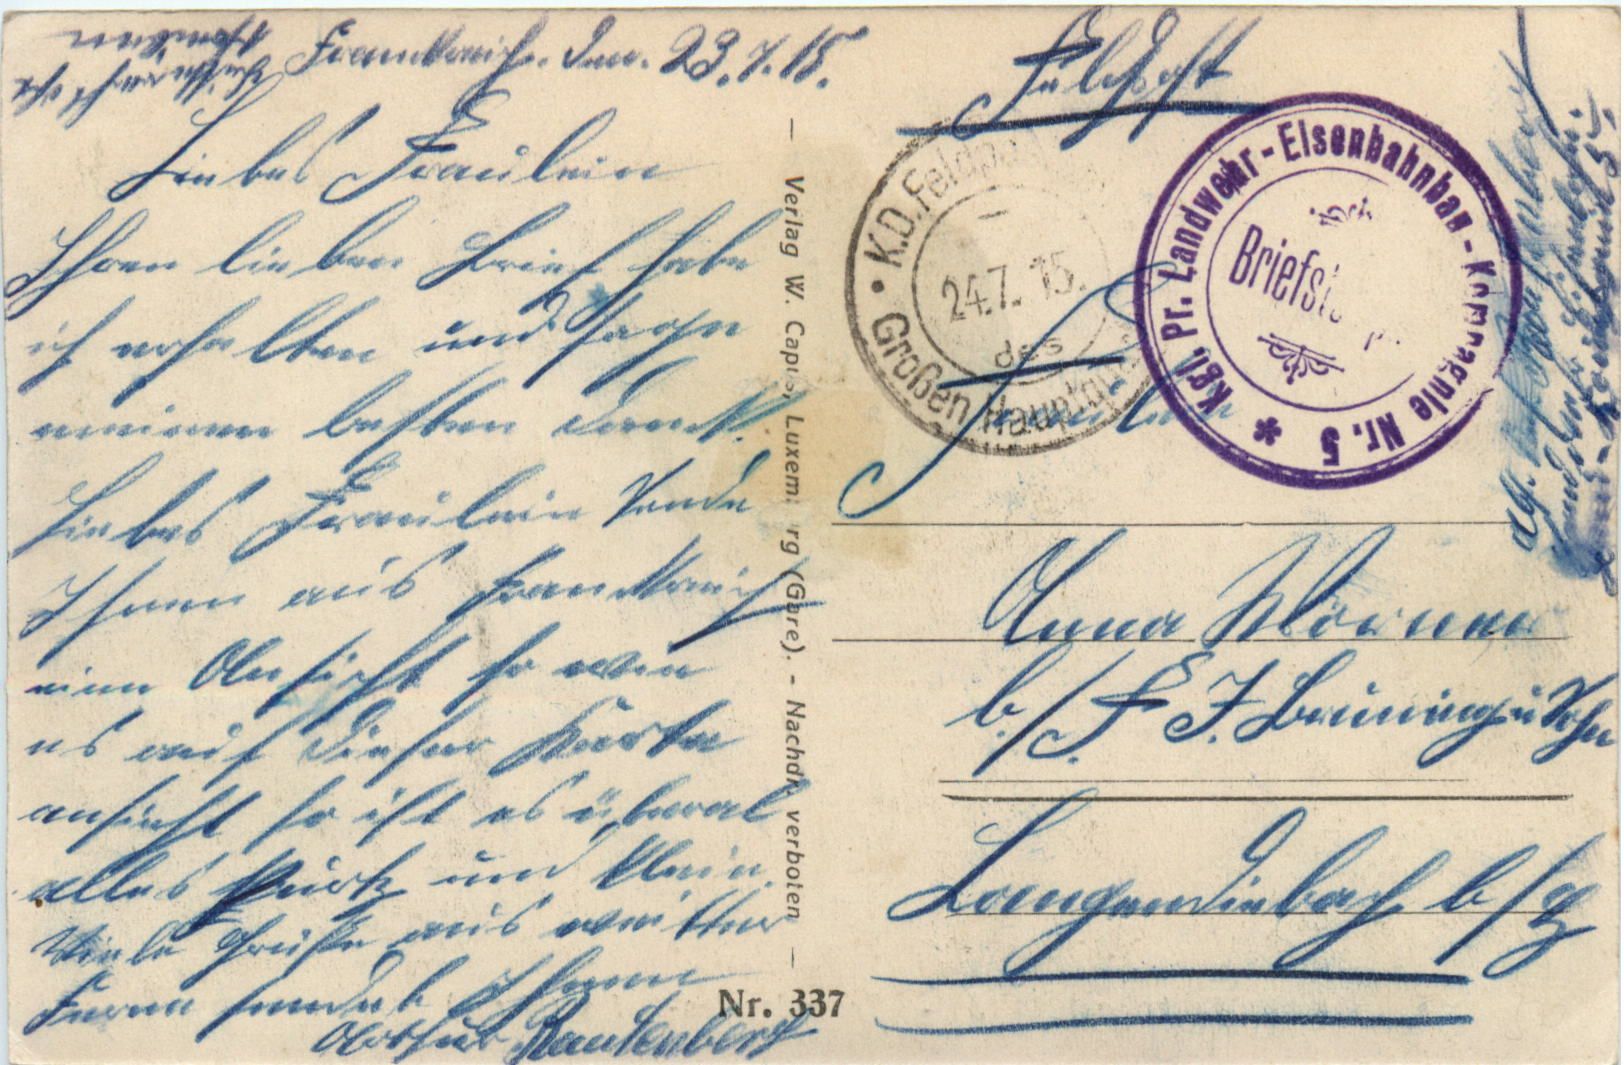 Frankreich. Den. 23.7.15.
Liebes Fräulein
Ihren lieben Brief habe
ich erhalten und sage
meinen besten Dank.
Liebes Fräulein sende
Ihnen aus Frankreich
eine Ansicht so wie
es auf dieser Karte
ansicht so ist es überal
alles kurtz und klein.
Viele Grüße aus weiter
Ferne sendet Ihnen
Arthur Rautenberg
Verlag W. Capus, Luxemburg (Gare). - Nachdr. verboten
Nr. 337
Feldpost
K.D. Feldpo
24.7.15.
des
Großen Hauptqu
Kgl. Pr. Landwehr-Eisenbahnbau-Kompagnie Nr. 5
Briefst
Fräulein
Anna Wörner
b/ F. J. Brüning u Sohn
Langendiebach b/